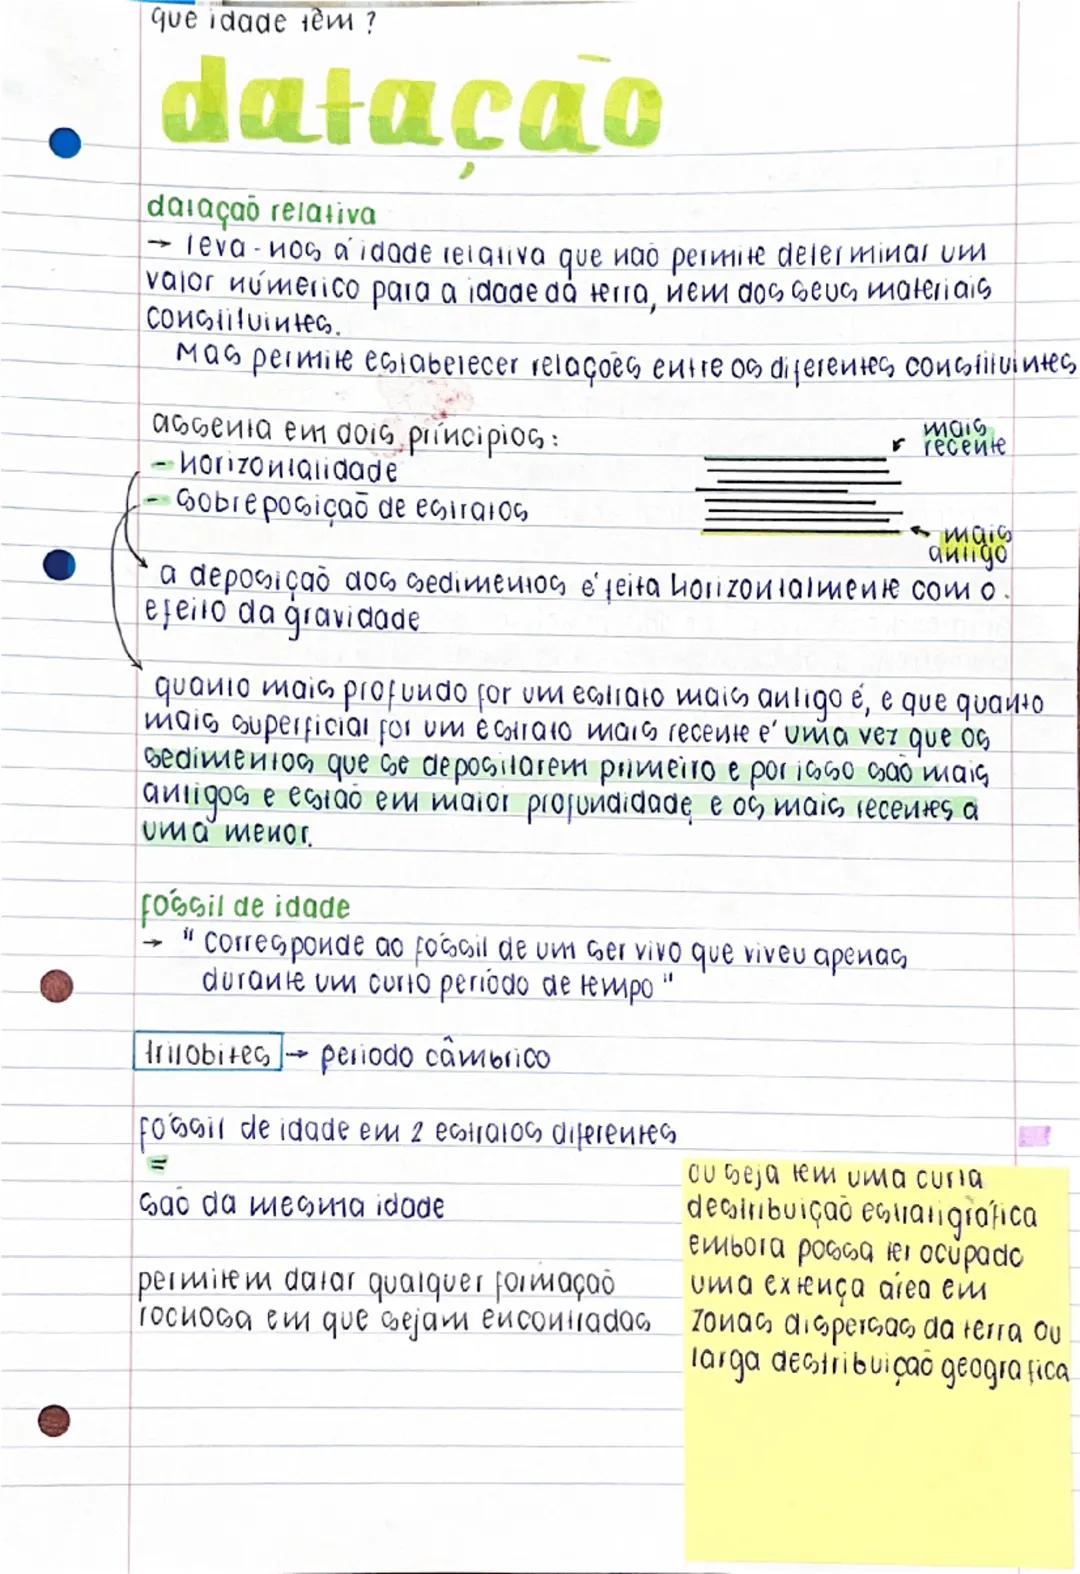 que idade têm ?
datação
datação relativa
→ leva-nos á idade relativa que não permite determinar um
valor númerico para a idade da terra, nem dos seus materiais
constituintes.
Mas permite estabelecer relações entre os diferentes constituintes
assenta em dois príncipios:
- horizontalidade
- sobreposição de estratos
mais
recente
mais
antigo
a deposição dos sedimentos é feita horizontalmente com o
efeito da gravidade
quanto mais profundo for um estrato mais antigo é, e que quanto
mais superficial for um estrato mais recente é uma vez que os
sedimentos que se depositarem primeiro e por isso são mais
antigos e estão em maior profundidade e os mais recentes a
uma menor.
fóssil de idade
→ " Corresponde ao fóssil de um ser vivo que viveu apenas
durante um curto período de tempo "
trilobites → periodo câmbrico
fóssil de idade em 2 estratos diferentes
=
são da mesma idade
permitem datar qualquer formação
rochosa em que sejam encontradas
ou seja tem uma curta
destribuição estratigráfica
embora possa ter ocupado
uma extença área em
zonas dispersas da terra ou
larga destribuição geografica